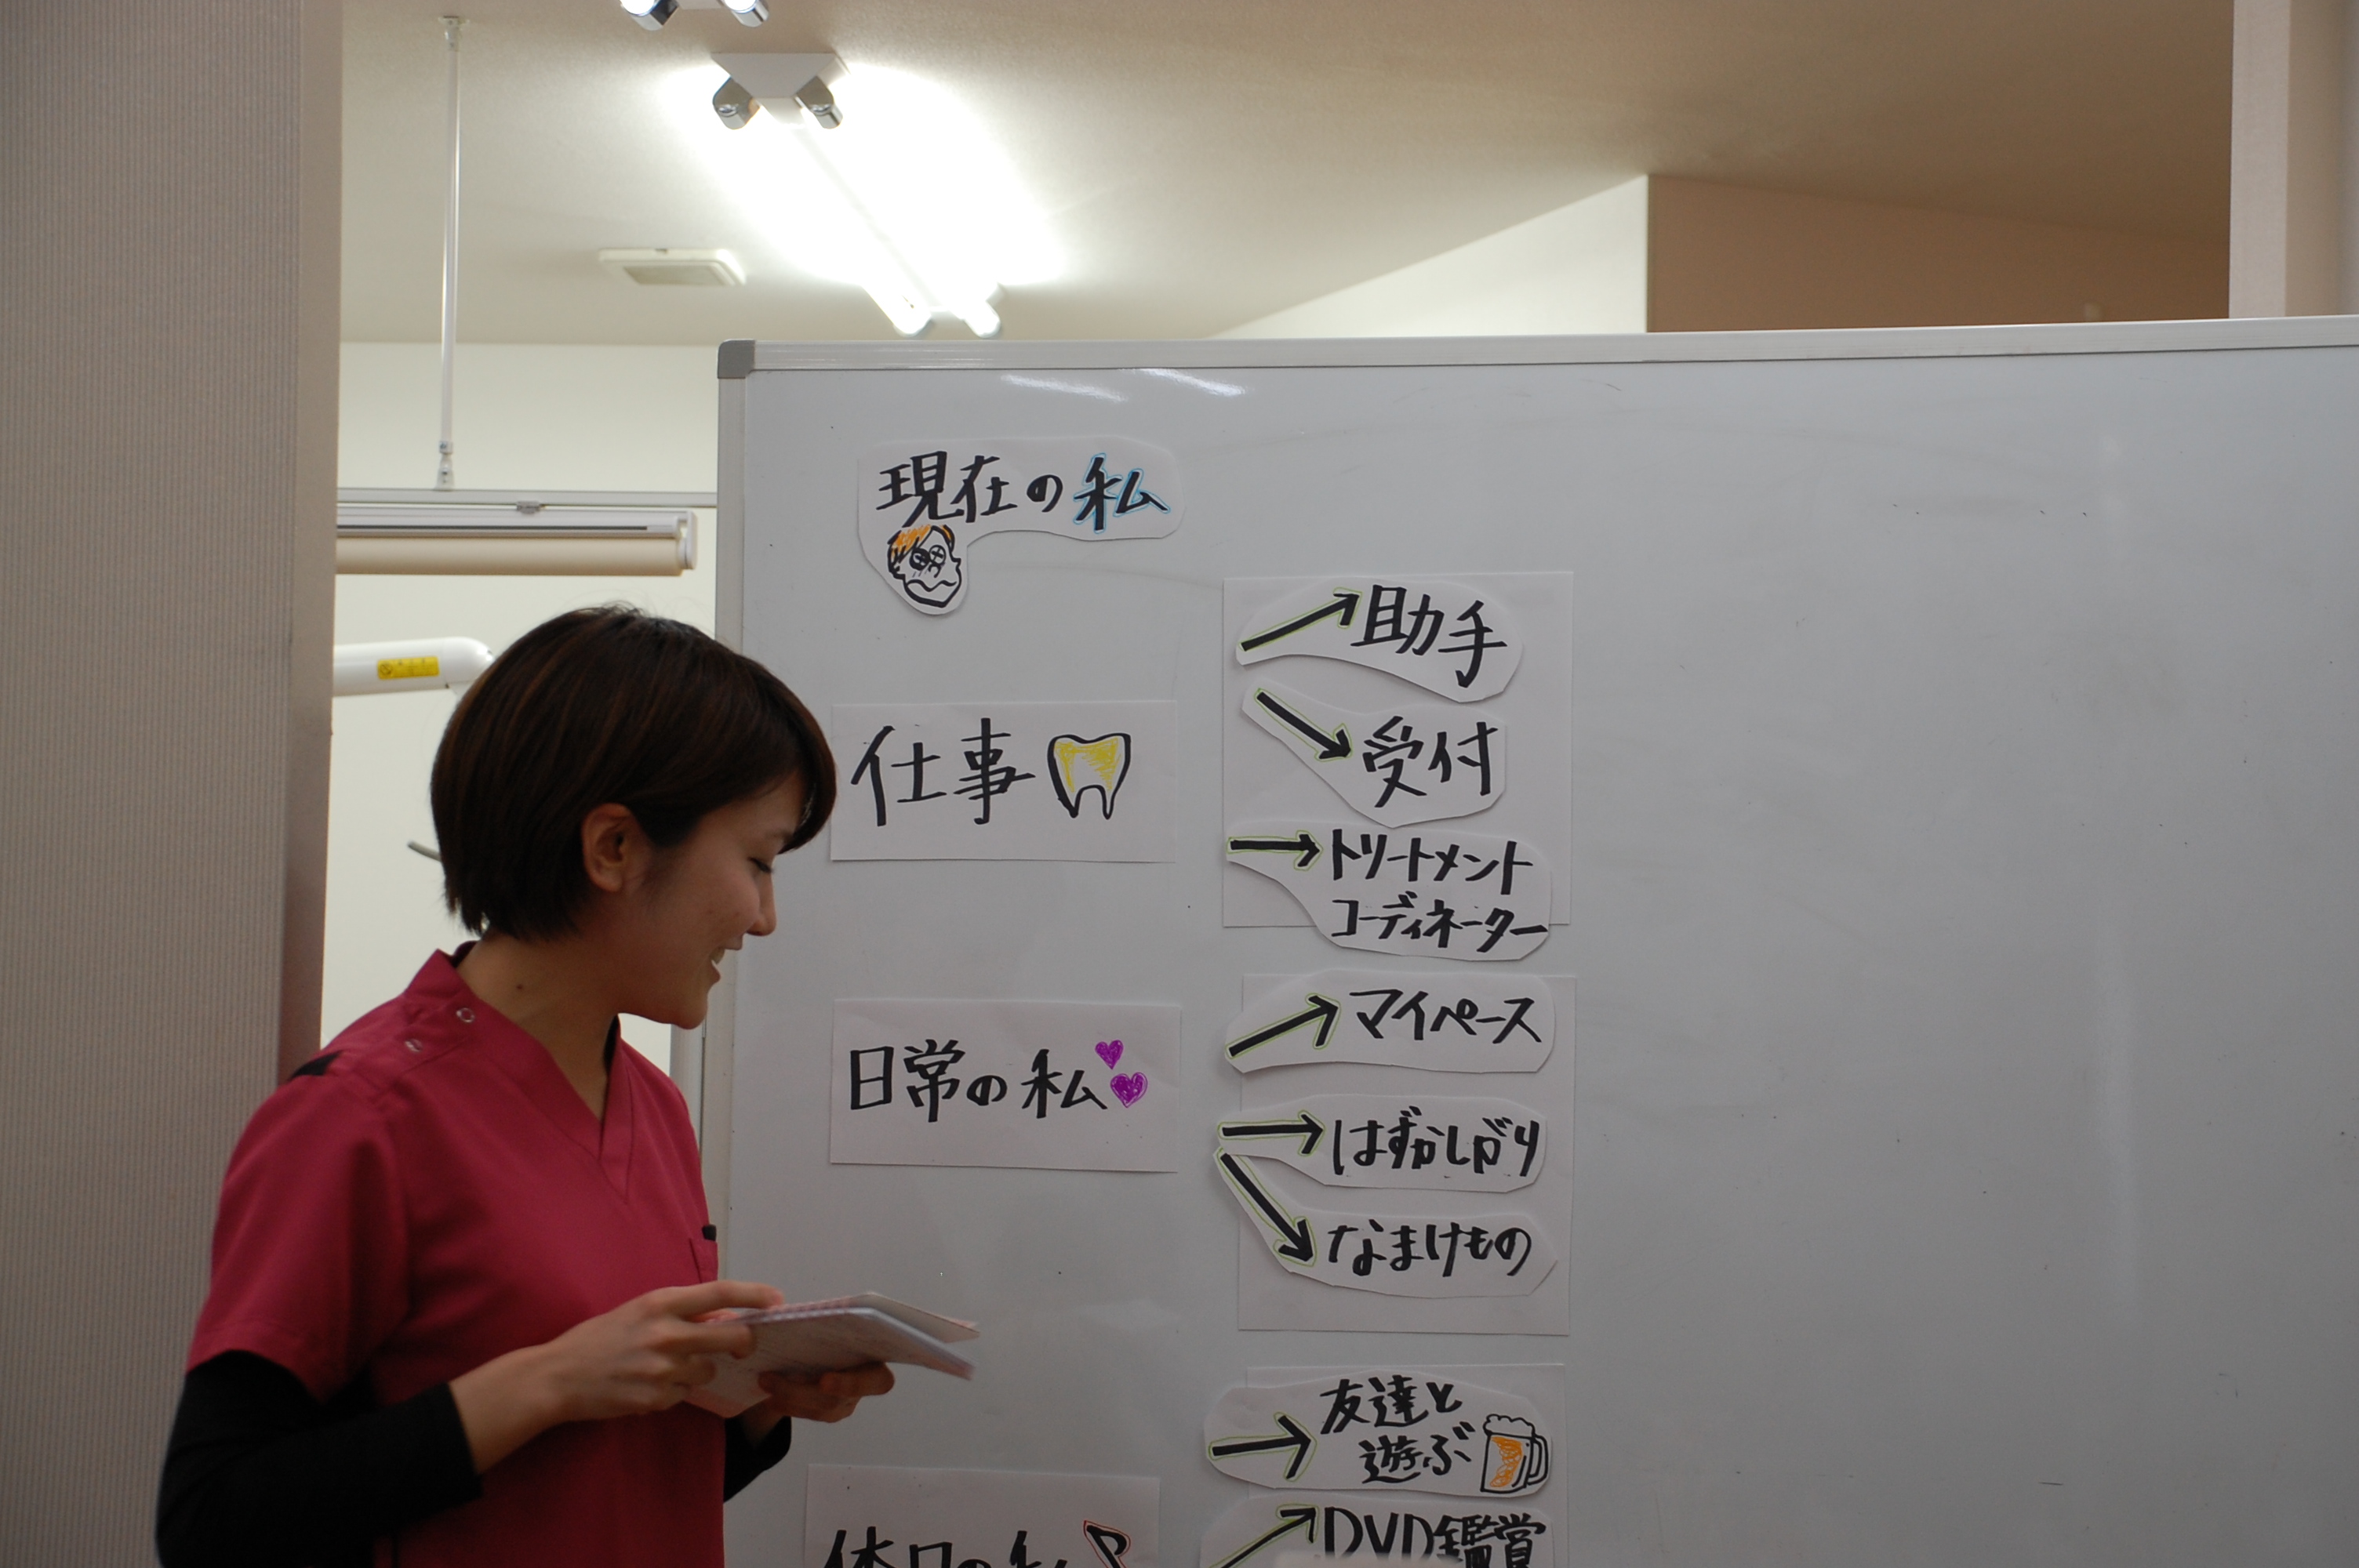 現在の私
仕事
助手
受付
トリートメント
コーディネーター
日常の私
マイペース
はずかしがり
なまけもの
友達と
遊ぶ
休日の私
DVD鑑賞